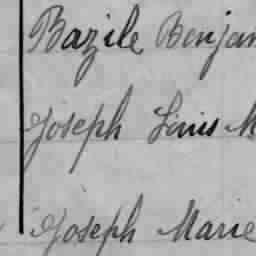 Bazile Benjam
Joseph Louis M
Joseph Marie